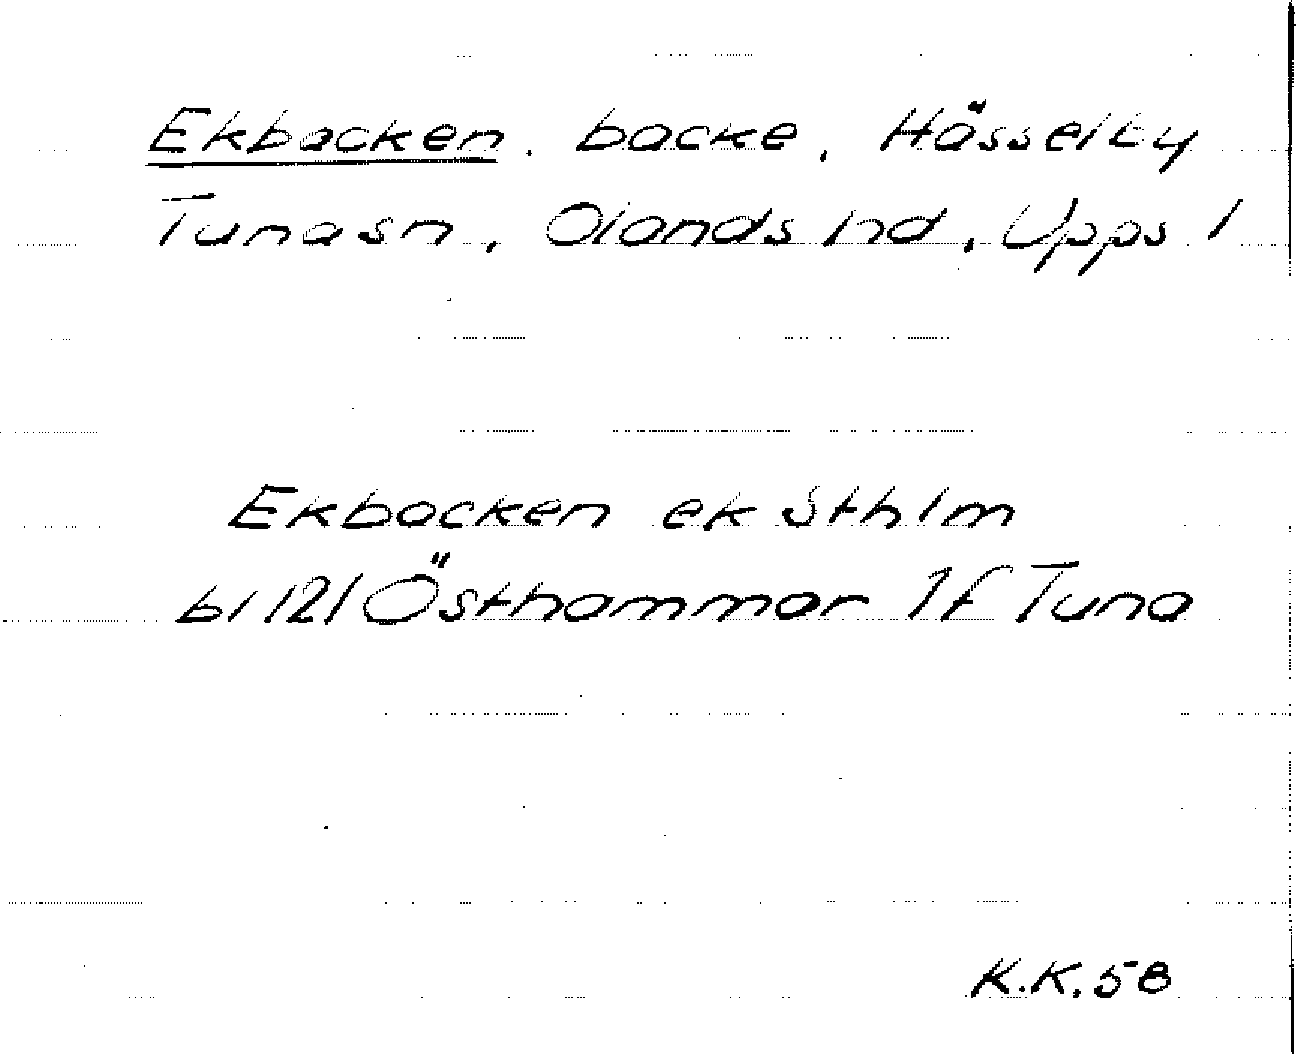 Ekbacken. backe, Hässelby
Tuna sn, Olands hd, Upps l
Ekbacken ek Sthlm
bl 121 Östhammar 1f Tuna
K.K. 58